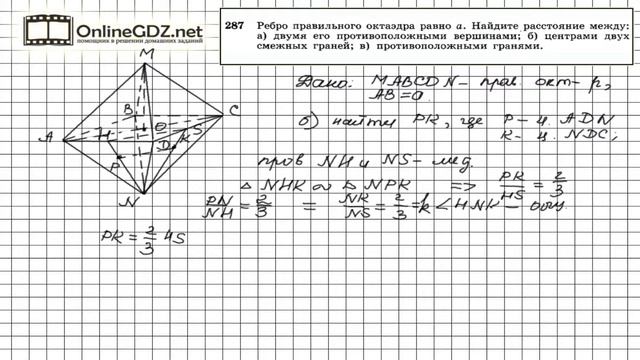 OnlineGDZ.com
помощник в решении домашних заданий
287 Ребро правильного октаэдра равно а. Найдите расстояние между:
а) двумя его противоположными вершинами; б) центрами двух
смежных граней; в) противоположными гранями.
Дано: MABCDN – прав. окт-р,
AB = a
б) найти PK, где P – ц. ADN
K – ц. NDC,
пров NH и NS – мед.
△ NHK ∾ △ NPK => PK/HS = 2/3
PN/NH = 2/3 = NK/NS = 2/3 = k ∠HNK – общ
PK = 2/3 HS
M
B
C
A
H
O
S
D
K
P
N